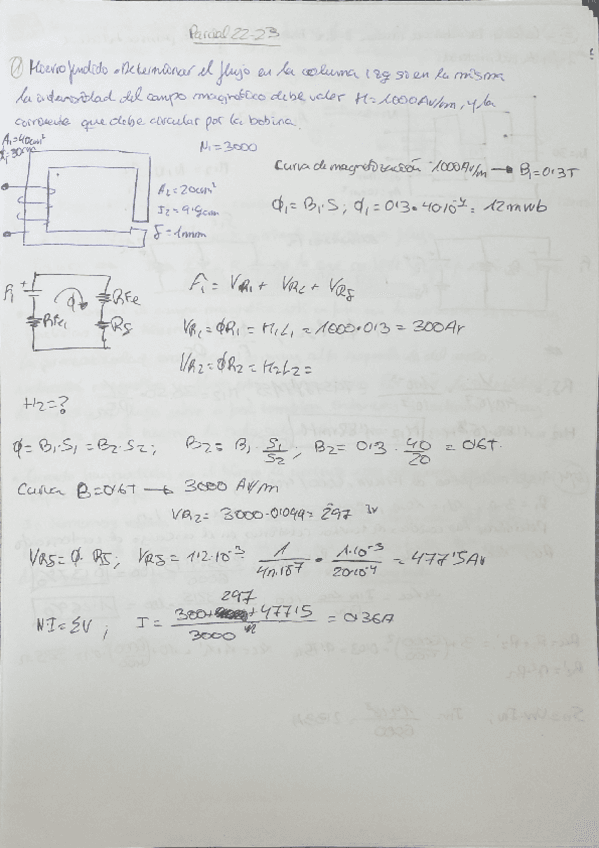 Parcial 22-23
① Hierro fundido. Determinar el flujo en la columna izq si en la misma
la intensidad del campo magnético debe valer H = 1000 Av/m, y la
corriente que debe circular por la bobina.
A₁=40cm²
l₁=30cm
N₁ = 3000
A₂ = 20cm²
l₂ = 9,9cm
δ = 1mm
Curva de magnetización 1000 Av/m → B₁ = 0,3T
ϕ₁ = B₁·S ; ϕ₁ = 0,3·40·10⁻⁴ = 1,2 mwb
F₁ = VR₁ + VR₂ + VRδ
F₁
ϕ
RFe₁
RFe
Rδ
VR₁ = ϕR₁ = H₁L₁ = 1000·0,3 = 300Av
VR₂ = ϕR₂ = H₂L₂ =
H₂ = ?
ϕ = B₁·S₁ = B₂·S₂ ; B₂ = B₁ · S₁/S₂ ; B₂ = 0,3 · 40/20 = 0,6T.
Curva B = 0,6T → 3000 AV/m
VR₂ = 3000·0,099 = 297 Av
VRδ = ϕ·Rδ ; VRδ = 1,2·10⁻³ · 1/4π·10⁻⁷ · 1·10⁻³/20·10⁻⁴ = 477,5 Av
NI = ΣV ; I = 300+297+477,5/3000 = 0,36A